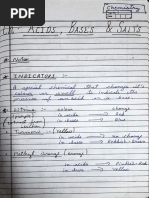 Chemistry
Ch - ACIDS, BASES & SALTS
Notes
INDICATORS :-
A special chemical that change it's
colour smell to indicate the
presence of acid or base.
Litmus :- colour change
in acids → Red
in base → Blue
Turmeric :- (Yellow)
in acids → no change
in base → Reddish-Brown
Methyl Orange (Orange)
in acids → Pinkish-Red
in base → Yellow